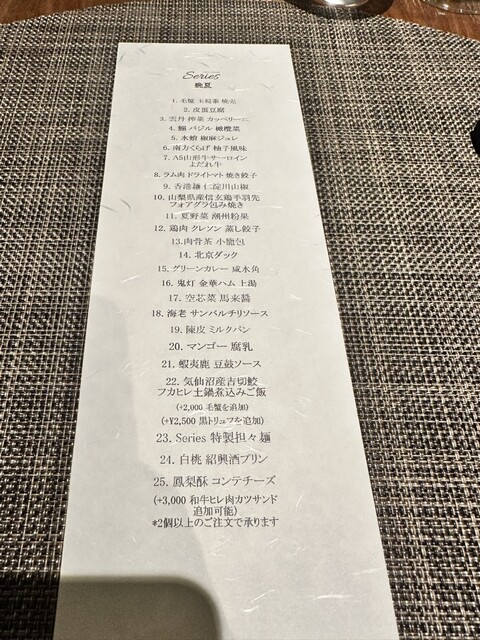 Series
晩夏
1. 毛蟹 玉蜀黍 焼売
2. 皮蛋豆腐
3. 雲丹 搾菜 カッペリーニ
4. 鰯 バジル 橄欖菜
5. 水蛸 椒麻ジュレ
6. 南方くらげ 柚子風味
7. A5山形牛サーロイン
よだれ牛
8. ラム肉 ドライトマト 焼き餃子
9. 香港麺 仁淀川山椒
10. 山梨県産信玄鶏手羽先
フォアグラ包み焼き
11. 夏野菜 潮州粉果
12. 鶏肉 クレソン 蒸し餃子
13.肉骨茶 小籠包
14. 北京ダック
15. グリーンカレー 咸水角
16. 鬼灯 金華ハム 上湯
17. 空芯菜 馬来醤
18. 海老 サンバルチリソース
19. 陳皮 ミルクパン
20. マンゴー 腐乳
21. 蝦夷鹿 豆鼓ソース
22. 気仙沼産吉切鮫
フカヒレ土鍋煮込みご飯
(+2,000 毛蟹を追加)
(+¥2,500 黒トリュフを追加)
23. Series 特製担々麺
24. 白桃 紹興酒プリン
25. 鳳梨酥 コンテチーズ
(+3,000 和牛ヒレ肉カツサンド
追加可能)
*2個以上のご注文で承ります